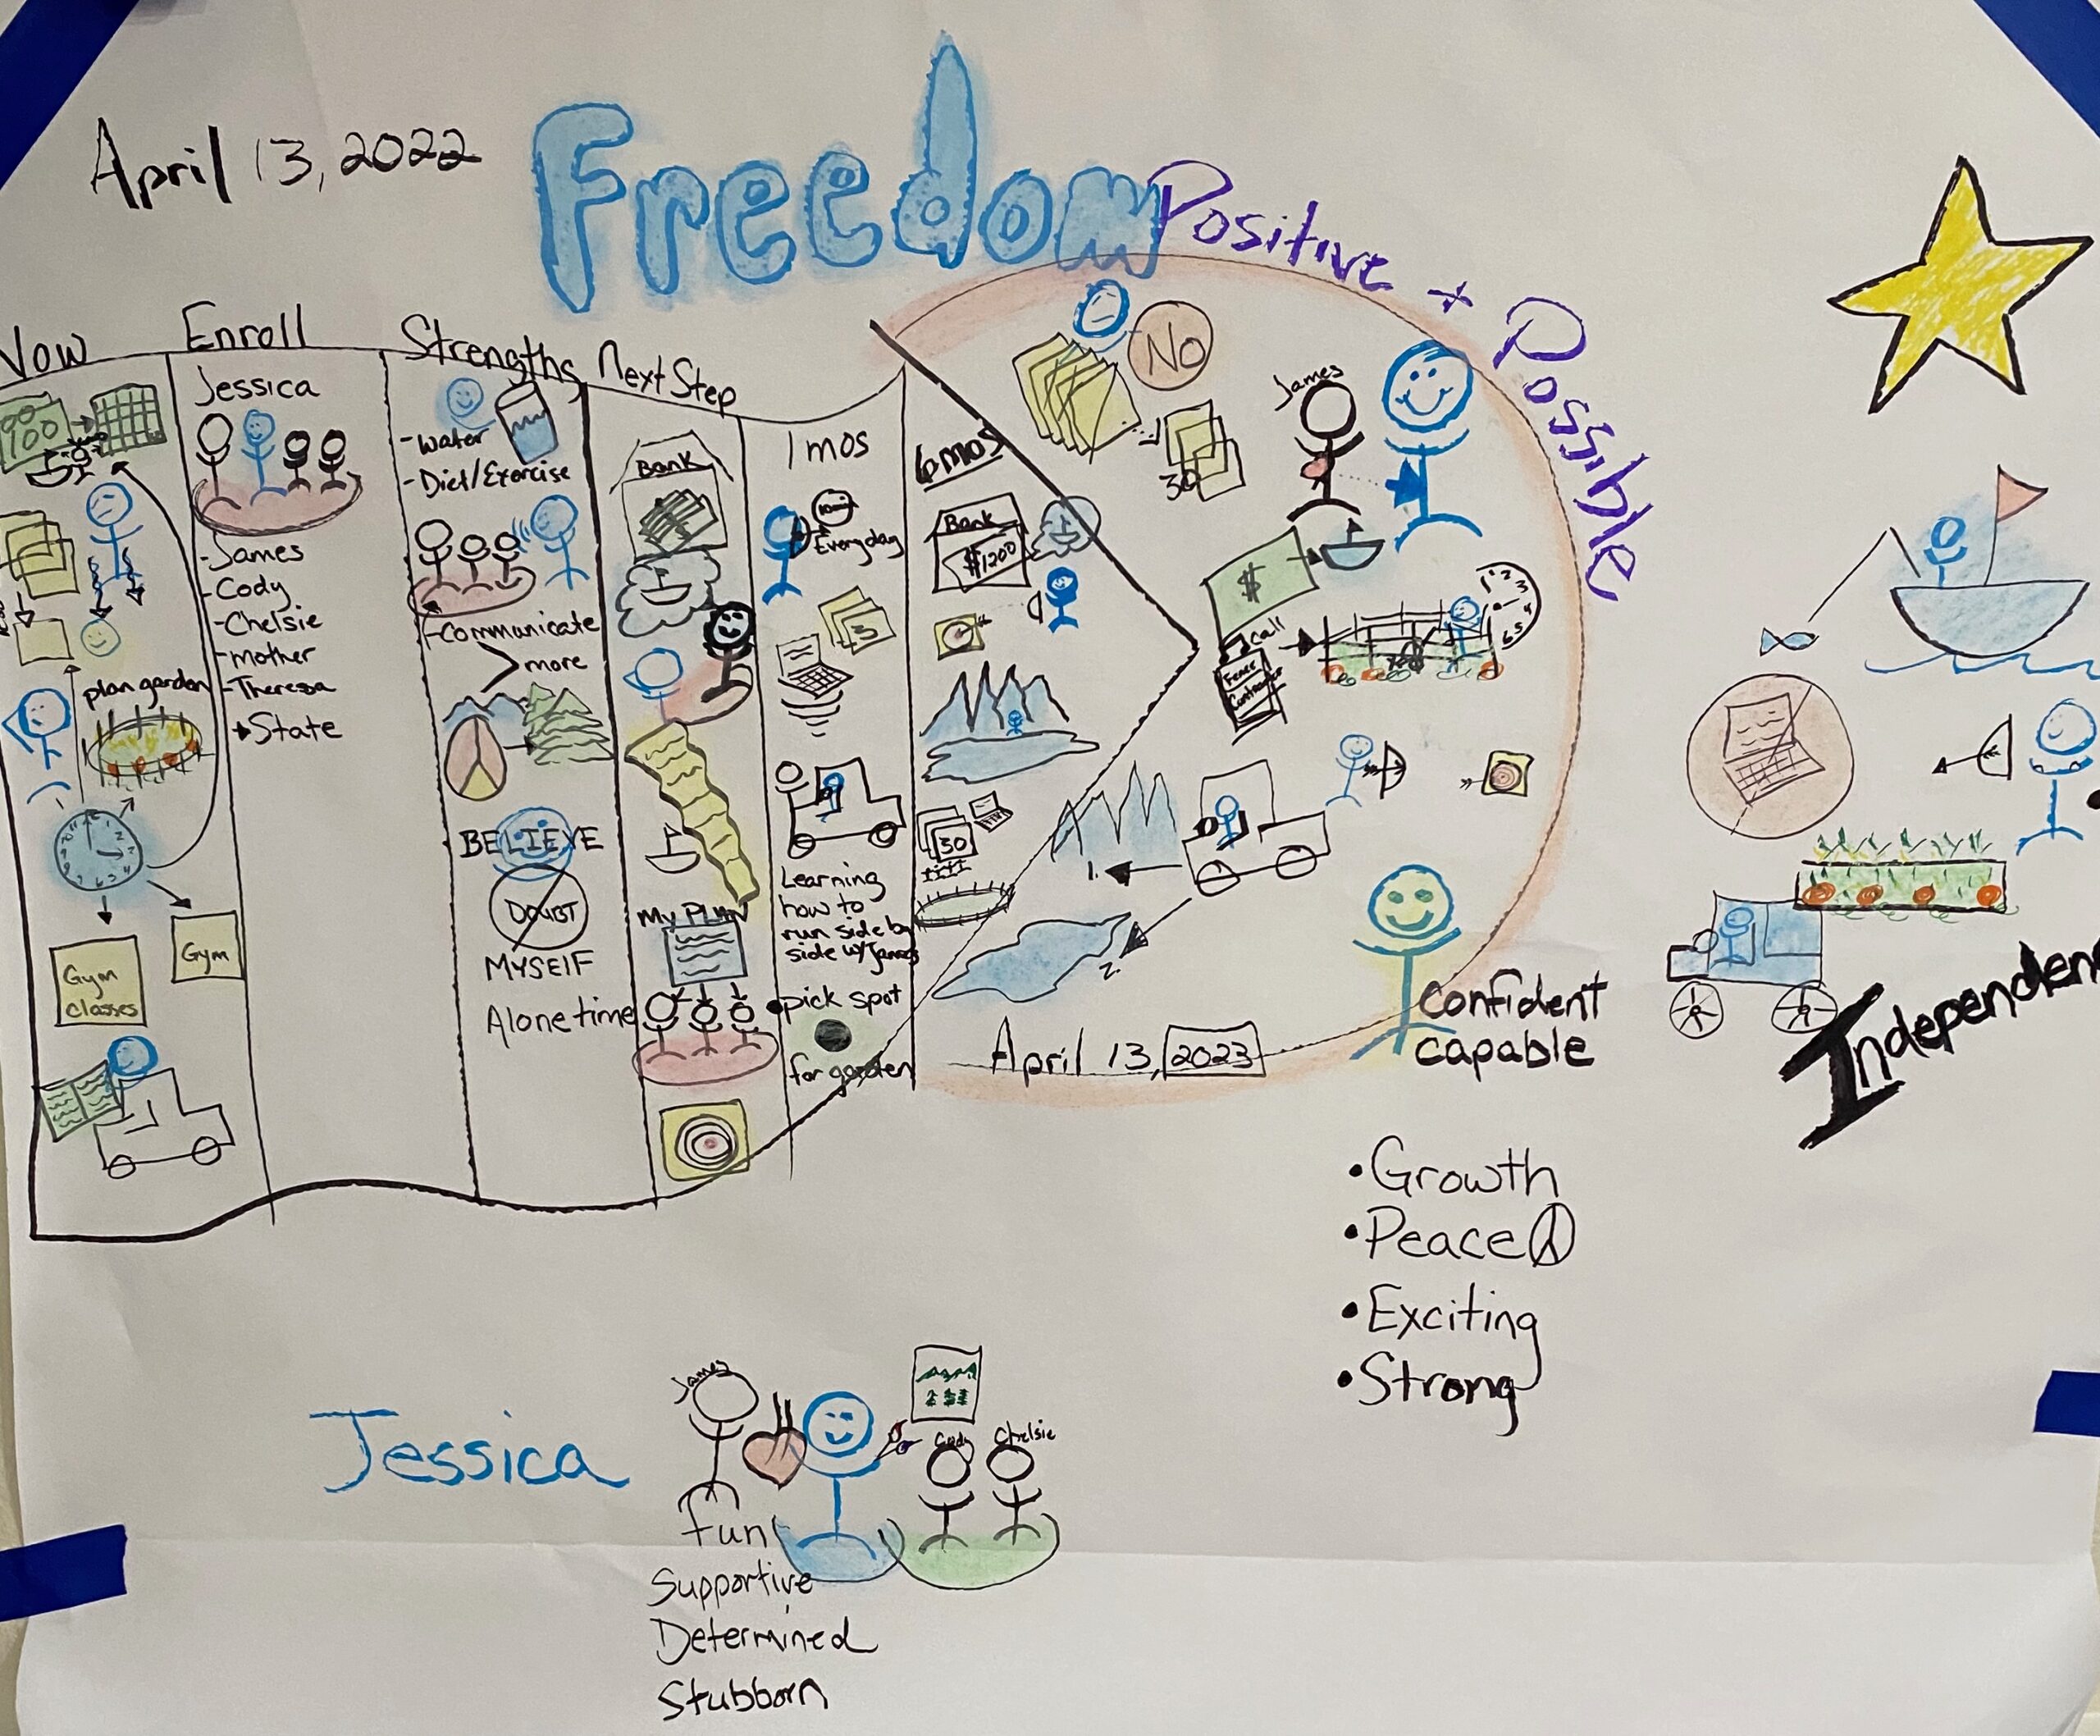 April 13, 2022
Freedom
Positive + Possible
Now
100
plan garden
Gym
classes
Gym
Enroll
Jessica
-James
-Cody
-Chelsie
-mother
-Theresa
State
Strengths
-water
-Diet/Exercise
-Communicate
> more
BELIEVE
DOUBT
MYSELF
Alone time
Next Step
Bank
My PLAN
1 mos
Everyday
3
Learning
how to
run side by
side w/James
•pick spot
for garden
6mos
Bank
$1200
30
NO
30
James
$
Call
Fence
Contractor
1.
2.
April 13, 2023
confident
capable
Independen
•Growth
•Peace
•Exciting
•Strong
Jessica
James
Cody
Chelsie
Fun
Supportive
Determined
Stubborn